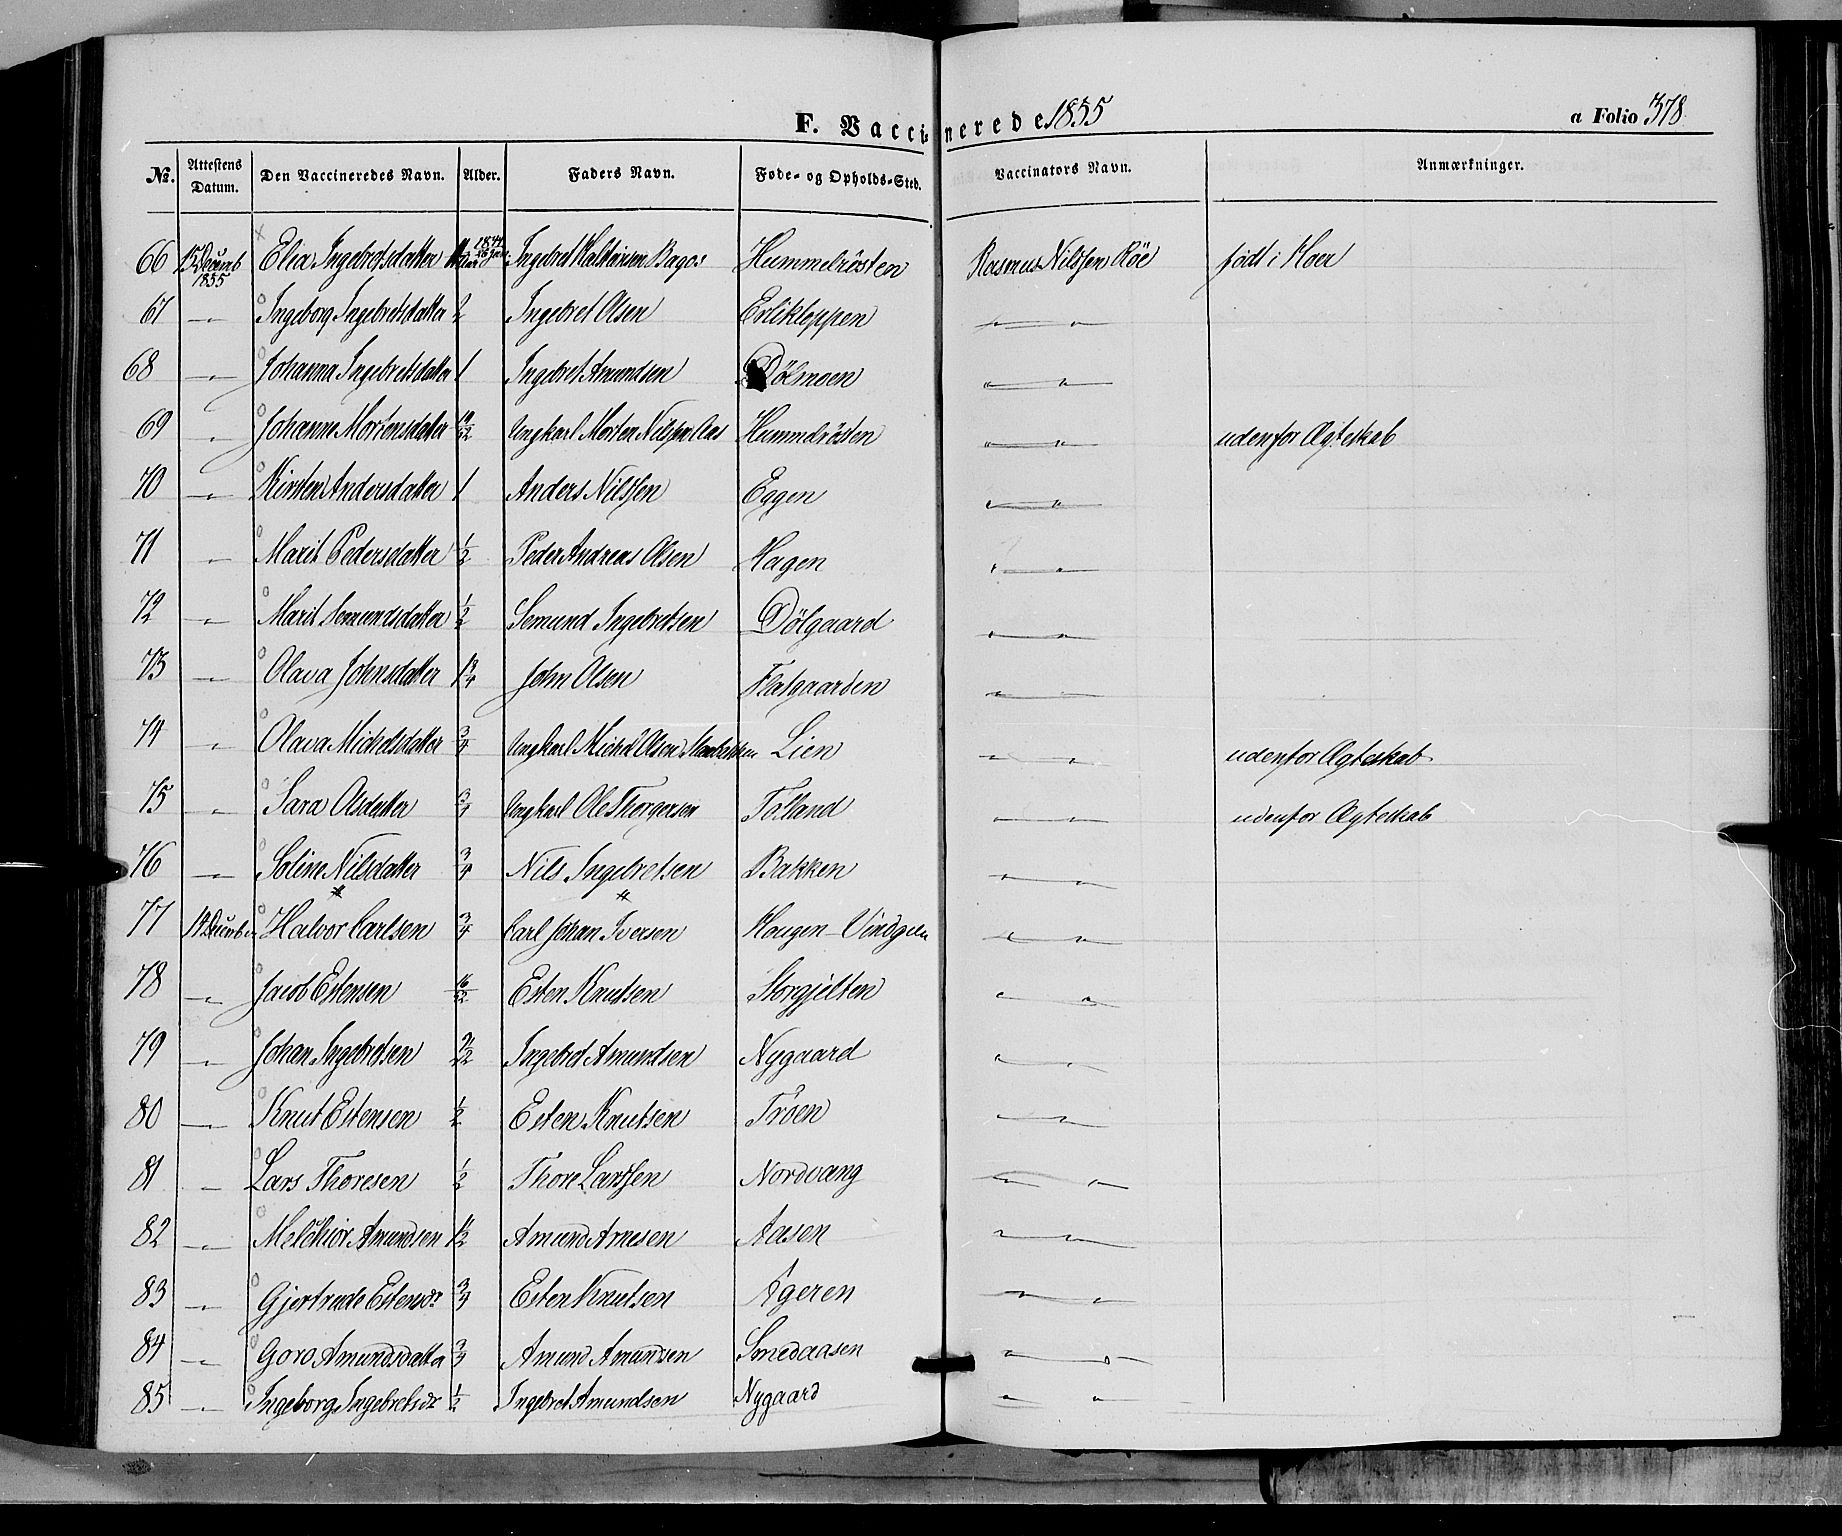 F. Vaccinerede 1855 a Folio 378
No. Attestens Datum. Den Vaccineredes Navn. Alder. Faders Navn. Føde- og Opholds-Sted. Vaccinators Navn. Anmærkninger.
66 15 Decemb 1855 Elen Ingebretsdatter Ingebret Hummelrösten Rasmus Nilssen Röe födt i
67 " Ingeborg Ingebretsdatter 2 Ingebret Olsen " "
68 " Johanna Ingebretsdatter 1 Ingebret Amundsen Dölmoen " "
69 " Johanne Mortensdatter Ungkarl Morten Nilssen Aas Hummelrösten " " udenfor Ægteskab
70 " Kirsten Andersdatter 1 Anders Nilssen Eggen " "
71 " Marit Pedersdatter 1/2 Peder Andreas Olsen Hagen " "
72 " Marit Semundsdatter 1/2 Semund Ingebretsen Dölgaard " "
73 " Olava Johnsdatter 1 3/4 John Olsen Flatgaarden " "
74 " Olava Mickelsdatter 3/4 Ungkarl Michel Olsen Lien " " udenfor Ægteskab
75 " Sara Olsdatter 3/4 Ungkarl Ole Thorgersen Tolland " " udenfor Ægteskab
76 " Soline Nilsdatter 3/4 Nils Ingebretsen Bakken " "
77 14 Decemb Halvor Carlsen 3/4 Carl Johan Iversen Haugen " "
78 " Jacob Estensen 16/52 Esten Knutsen Storgjelten " "
79 " Johan Ingebretsen Ingebret Amundsen Nygaard " "
80 " Knut Estensen 1/2 Esten Knutsen Tröen " "
81 " Lars Thoresen 1/2 Thore Larssen Nordvang " "
82 " Melchior Amundsen 1 1/2 Amund Arnesen Aasen " "
83 " Gjertrude Estensdr 3/4 Esten Knutsen Ageren " "
84 " Goro Amundsdatter 3/4 Amund Amundsen Smedaasen " "
85 " Ingeborg Ingebretsdr 1/2 Ingebret Amundsen Nygaard " "